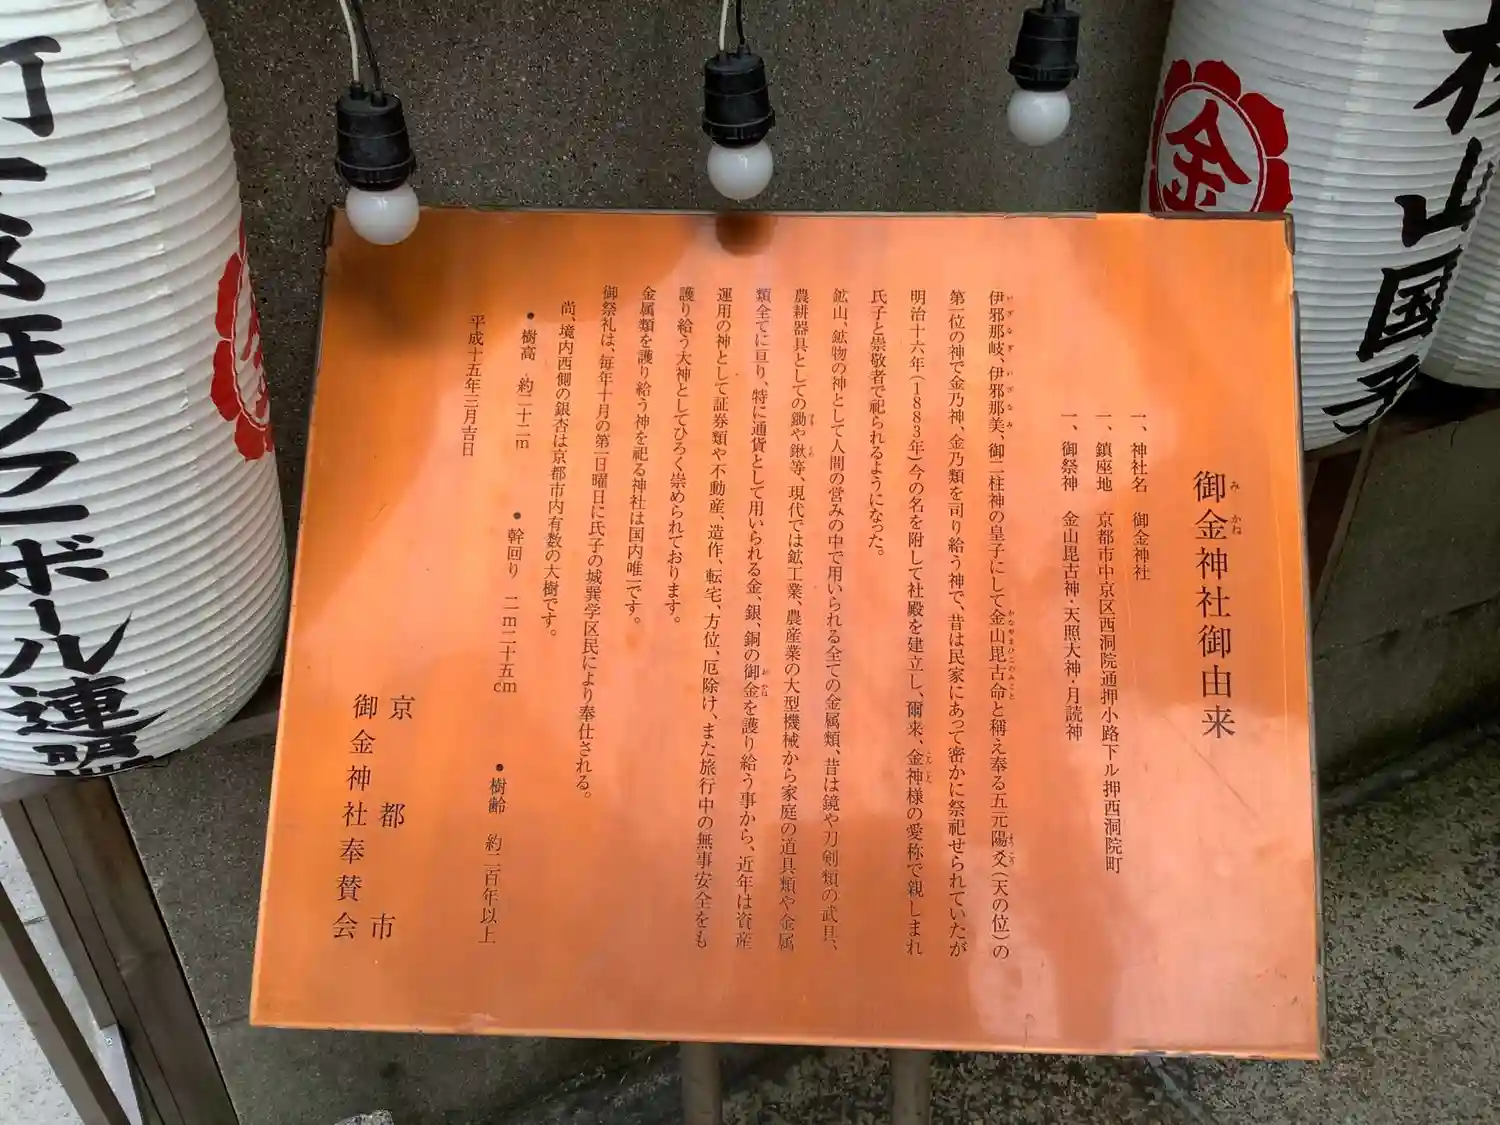 御金神社御由来
一、神社名　御金神社
一、鎮座地　京都市中京区西洞院通押小路下ル押西洞院町
一、御祭神　金山毘古神・天照大神・月読神
伊邪那岐、伊邪那美、御二柱神の皇子にして金山毘古命と稱え奉る五元陽爻（天の位）の
第一位の神で金乃神、金乃類を司り給う神で、昔は民家にあって密かに祭祀せられていたが
明治十六年（1883年）今の名を附して社殿を建立し、爾来、金神様の愛称で親しまれ
氏子と崇敬者で祀られるようになった。
鉱山、鉱物の神として人間の営みの中で用いられる全ての金属類、昔は鏡や刀剣類の武具、
農耕器具としての鋤や鍬等、現代では鉱工業、農産業の大型機械から家庭の道具類や金属
類全てに亘り、特に通貨として用いられる金、銀、銅の御金を護り給う事から、近年は資産
運用の神として証券類や不動産、造作、転宅、方位、厄除け、また旅行中の無事安全をも
護り給う大神としてひろく崇められております。
金属類を護り給う神を祀る神社は国内唯一です。
御祭礼は、毎年十月の第一日曜日に氏子の城巽学区民により奉仕される。
尚、境内西側の銀杏は京都市内有数の大樹です。
●樹高　約二十二m　●幹回り　二m二十五cm　●樹齢　約二百年以上
平成十五年三月吉日
京都市
御金神社奉賛会
金
山国
ボール連盟